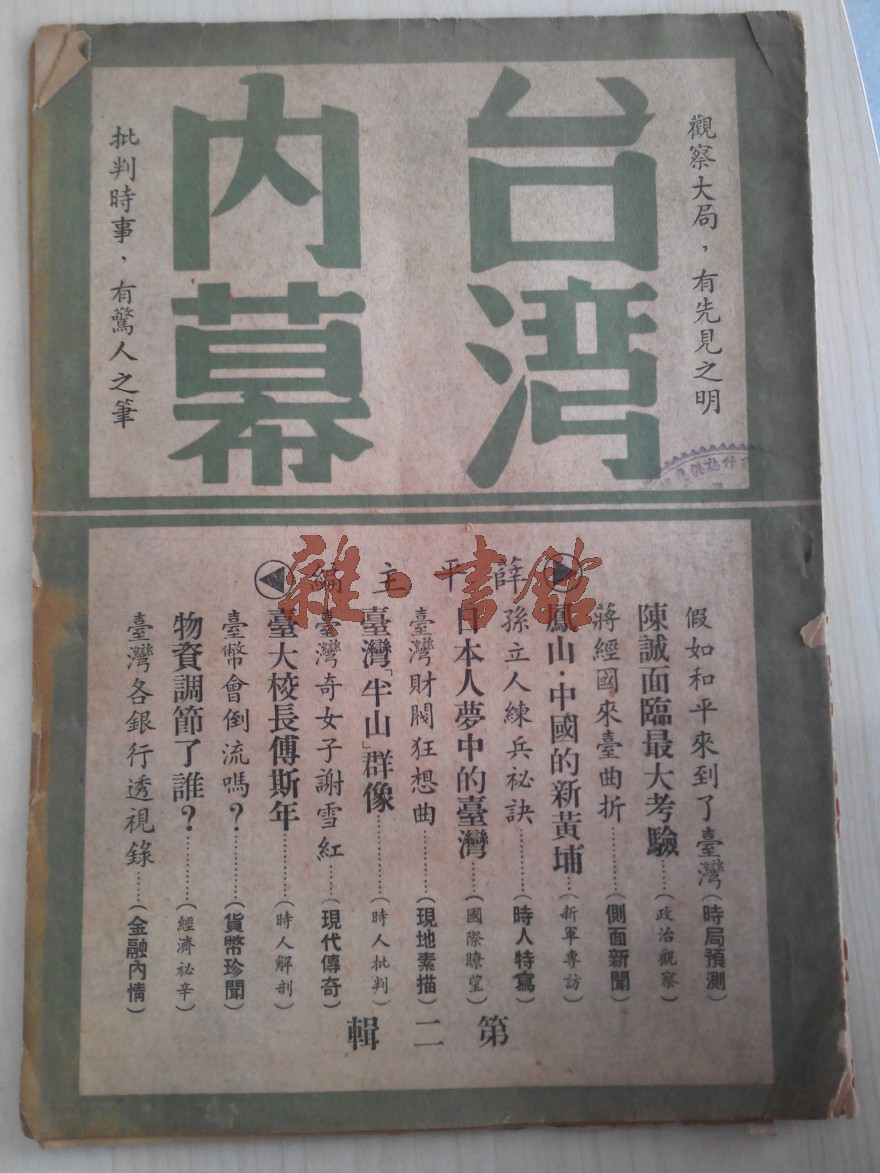 觀察大局，有先見之明
台灣
内幕
批判時事，有驚人之筆
薛平主編
假如和平來到了臺灣（時局預測）
陳誠面臨最大考驗……（政治觀察）
蔣經國來臺曲折………（側面新聞）
鳳山·中國的新黃埔…（新軍專訪）
孫立人練兵祕訣………（時人特寫）
日本人夢中的臺灣……（國際瞭望）
臺灣財閥狂想曲………（現地素描）
臺灣「半山」群像…………（時人批判）
臺灣奇女子謝雪紅……（現代傳奇）
臺大校長傅斯年………（時人解剖）
臺幣會倒流嗎？………（貨幣珍聞）
物資調節了誰？………（經濟祕辛）
臺灣各銀行透視錄……（金融內情）
第二輯
雜·書館